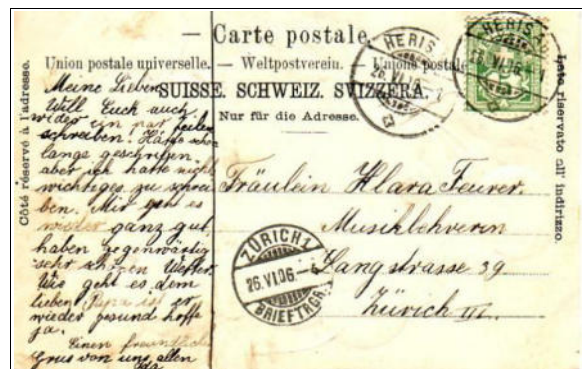 Carte postale.
Union postale universelle. — Weltpostverein. — Unione postale
SUISSE. SCHWEIZ. SVIZZERA.
Nur für die Adresse.
Côté réservé à l'adresse.
Lato riservato all' indirizzo.
HERISAU
26.VI.06.
HERISAU
Meine Lieben
Will Euch auch
wider ein par Zeilen
schreiben. Hätte schon
lange geschriben,
aber ich hatte nicht
wichtiges zu schrei
ben. Mir geht es
wieder ganz gut
haben gegenwärtig
sehr schönes Wetter.
Wie geht es dem
lieben Papa ist er
wieder gesund hoffe
ja.
Einen freundlich
Grus von uns allen
Ida
Fräulein Klara Feurer.
Musiklehrerin
Langstrasse 39
Zürich III.
ZÜRICH 1
26.VI.06.
BRIEFTRGR.